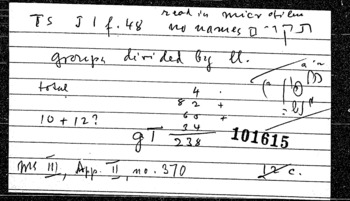 TS J 1 f. 48 read in microfilm
no names
groups divided by ll.
total 4
82 +
10 + 12? 60 +
34
gT 238
101615
MS III, App. II, no. 370 12 c.